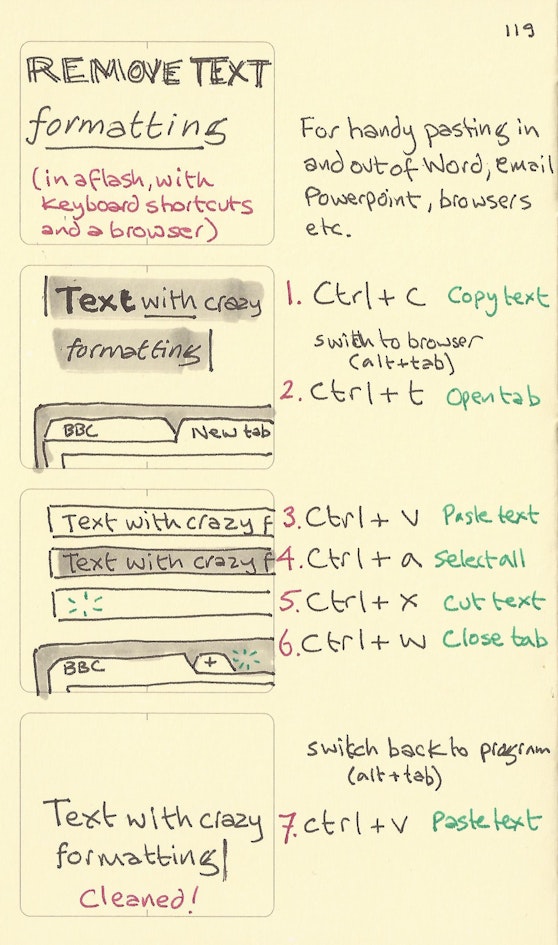 119
REMOVE TEXT
formatting
(in a flash, with
keyboard shortcuts
and a browser)
For handy pasting in
and out of Word, email
Powerpoint, browsers
etc.
Text with crazy
formatting
BBC
New tab
1. Ctrl + C Copy text
switch to browser
(alt+tab)
2. Ctrl + t Open tab
Text with crazy f
Text with crazy f
BBC
+
3. Ctrl + V Paste text
4. Ctrl + a Select all
5. Ctrl + X Cut text
6. Ctrl + W Close tab
switch back to program
(alt+tab)
7. Ctrl + V Paste text
Text with crazy
formatting
Cleaned!